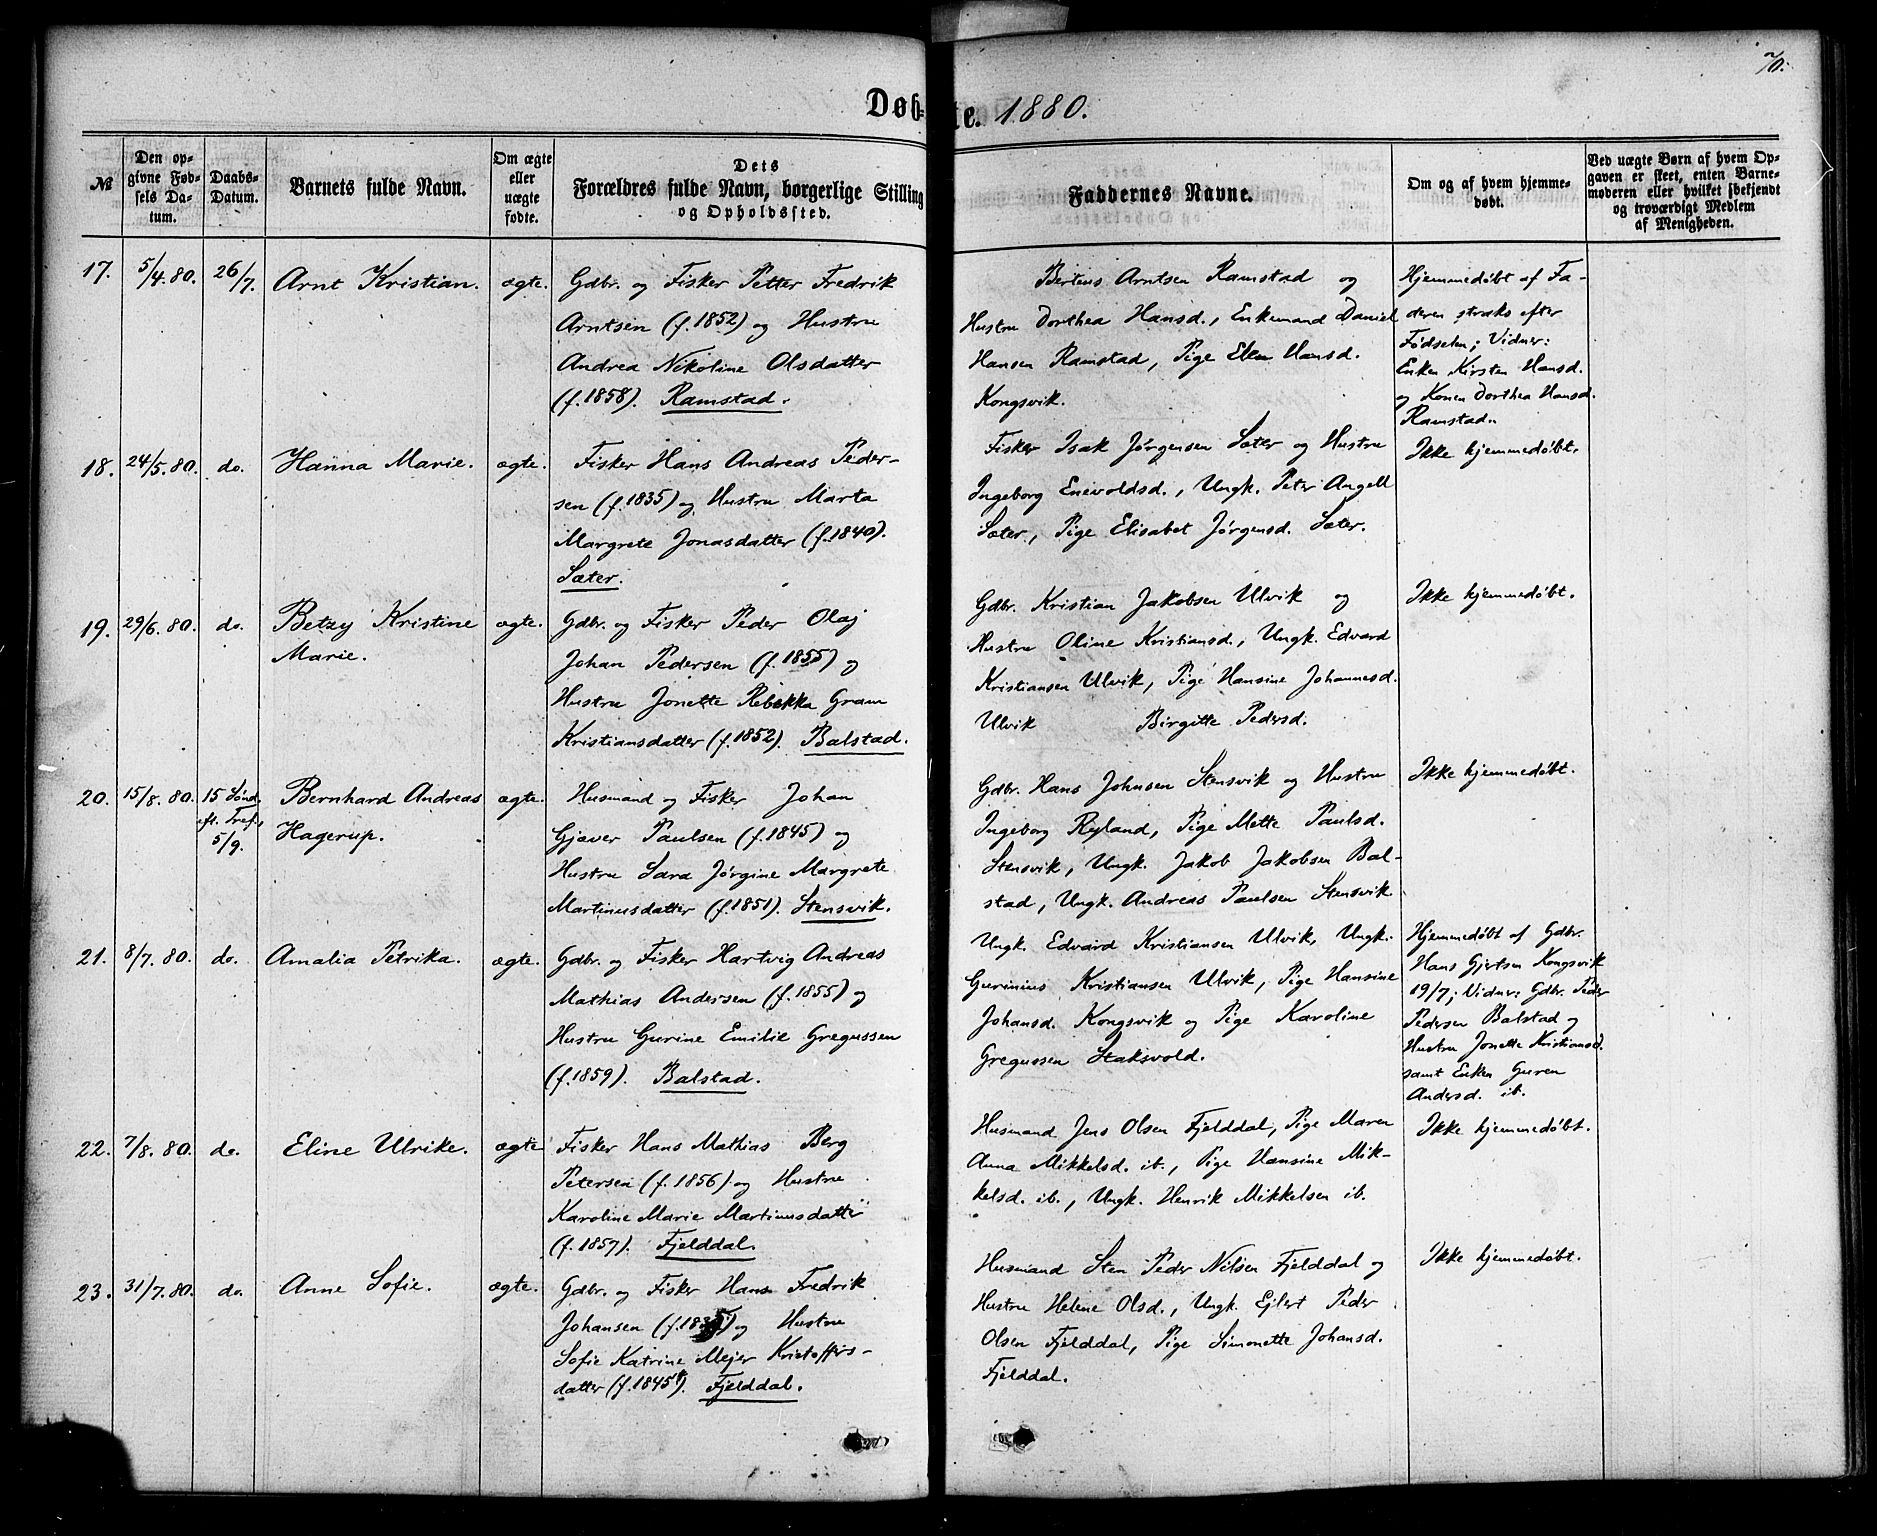 70.
Døbte. 1880.
№
Den opgivne Fødsels Datum.
Daabs-Datum.
Barnets fulde Navn.
Om ægte eller uægte fødte.
Dets Forældres fulde Navn, borgerlige Stilling og Opholdssted.
Faddernes Navne.
Om og af hvem hjemmedøbt.
Ved uægte Børn af hvem Opgaven er skeet, enten Barnemoderen eller hvilket bekjendt og troværdigt Medlem af Menigheden.
17. 5/4. 80. 26/7. Arnt Kristian. ægte.
Gdbr. og Fisker Petter Fredrik
Arntsen (f. 1852) og Hustru
Andrea Nikoline Olsdatter
(f. 1858). Ramstad.
Berteus Arntsen Ramstad og
Hustru Dorthea Hansd., Enkemand Daniel
Hansen Ramstad, Pige Elen Hansd.
Kongsvik.
Hjemmedøbt af Fa-
deren straks efter
Fødselen; Vidner:
Enken Kirsten Hansd.
og Konen Dorthea Hansd.
Ramstad.
18. 24/5. 80. do. Hanna Marie. ægte.
Fisker Hans Andreas Peder-
sen (f. 1835) og Hustru Marta
Margrete Jonasdatter (f. 1840).
Sæter.
Fisker Isak Jørgensen Sæter og Hustru
Ingeborg Enevoldsd., Ungk. Peter Angell
Sæter, Pige Elisabet Jørgensd. Sæter.
Ikke hjemmedøbt.
19. 29/6. 80. do. Betzy Kristine
Marie. ægte.
Gdbr. og Fisker Peder Olaj
Johan Pedersen (f. 1855) og
Hustru Jonette Rebekka Gram
Kristiansdatter (f. 1852). Balstad.
Gdbr. Kristian Jakobsen Ulvik og
Hustru Oline Kristiansd., Ungk. Edvard
Kristiansen Ulvik, Pige Hansine Johannesd.
Ulvik Birgitte Pedersd.
Ikke hjemmedøbt.
20. 15/8. 80. 15 Sønd.
eft. Tref.
5/9. Bernhard Andreas
Hagerup. ægte.
Husmand og Fisker Johan
Gjæver Paulsen (f. 1845) og
Hustru Sara Jørgine Margrete
Martinusdatter (f. 1851). Stensvik.
Gdbr. Hans Johnsen Stensvik og Hustru
Ingeborg Ryland, Pige Mette Paulsd.
Stensvik, Ungk. Jakob Jakobsen Bal-
stad, Ungk. Andreas Paulsen Stensvik
Ikke hjemmedøbt.
21. 8/7. 80. do. Amalia Petrika. ægte.
Gdbr. og Fisker Hartvig Andreas
Mathias Andersen (f. 1855) og
Hustru Gurine Emilie Gregussen
(f. 1859). Balstad.
Ungk. Edvard Kristiansen Ulvik, Ungk.
Gurinius Kristiansen Ulvik, Pige Hansine
Johansd. Kongsvik og Pige Karoline
Gregussen Staksvold.
Hjemmedøbt af Gdbr.
Hans Gjertsen Kongsvik
19/7; Vidner: Gdbr. Peder
Pedersen Balstad og
Hustru Jonette Kristiansd.
samt Enken Guren
Andersd. ib.
22. 7/8. 80. do. Eline Ulrike. ægte
Fisker Hans Mathias Berg
Petersen (f. 1856) og Hustru
Karoline Marie Martinusdatter
(f. 1857). Fjelddal.
Husmand Jens Olsen Fjelddal, Pige Maren
Anna Mikkelsd. ib., Pige Hansine Mik-
kelsd. ib., Ungk. Henrik Mikkelsen ib.
Ikke hjemmedøbt.
23. 31/7. 80. do. Anne Sofie. ægte.
Gdbr. og Fisker Hans Fredrik
Johansen (f. ) og Hustru
Sofie Katrine Mejer Kristoffers-
datter (f. 1845). Fjelddal.
Husmand Sten Peder Nilsen Fjelddal og
Hustru Helene Olsd., Ungk. Ejlert Peder
Olsen Fjelddal, Pige Simonette Johansd.
Fjelddal.
Ikke hjemmedøbt.